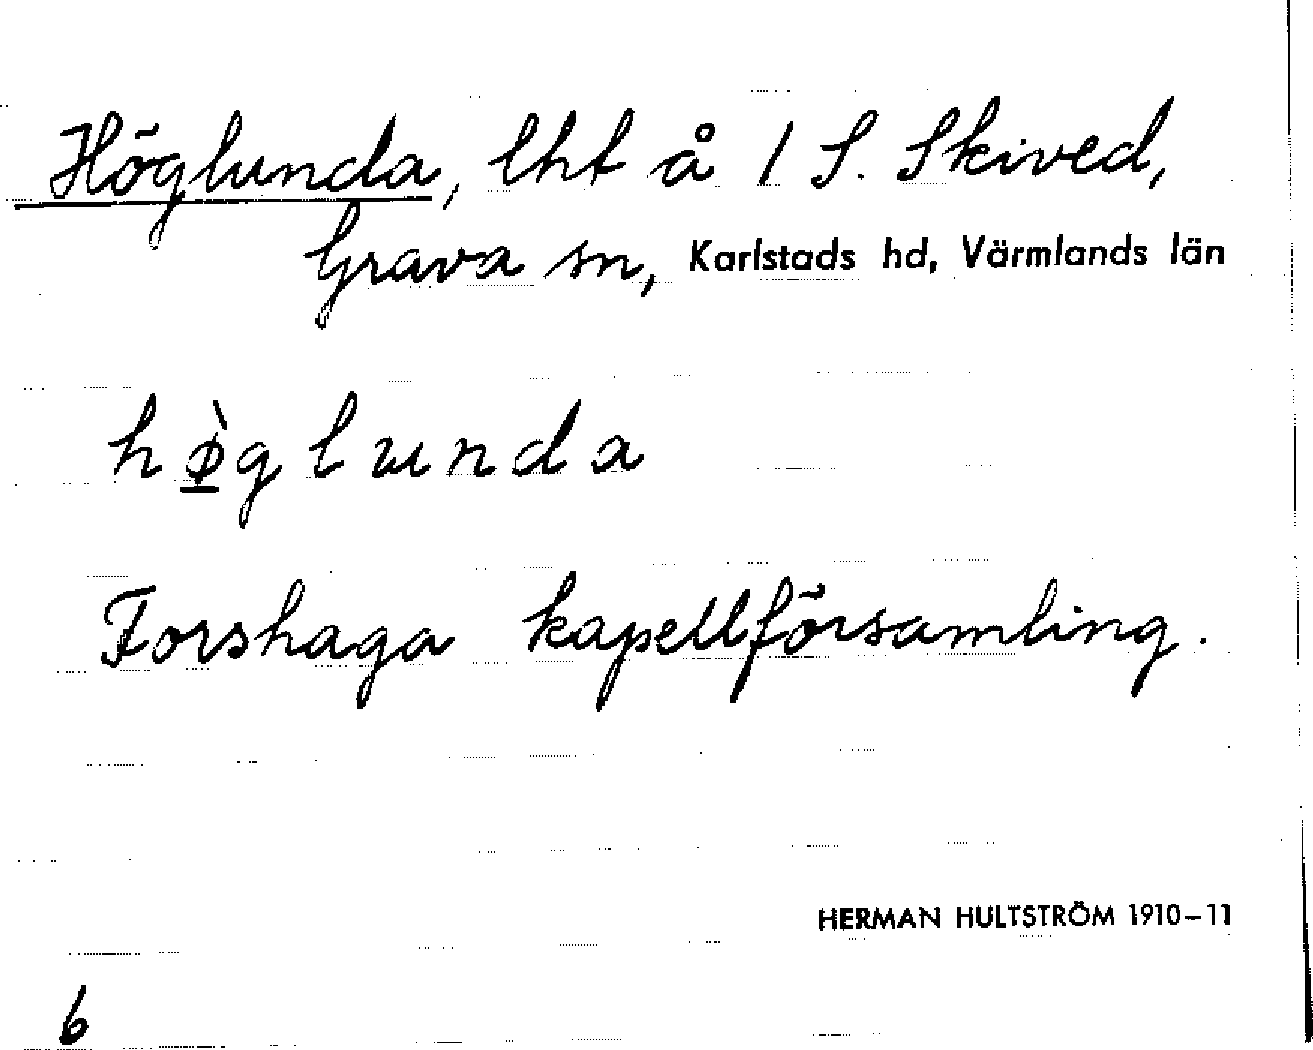 Höglunda, lht å 1 S. Skived,
Grava sn, Karlstads hd, Värmlands län
hø̀glunda
Forshaga kapellförsamling.
HERMAN HULTSTRÖM 1910-11
6